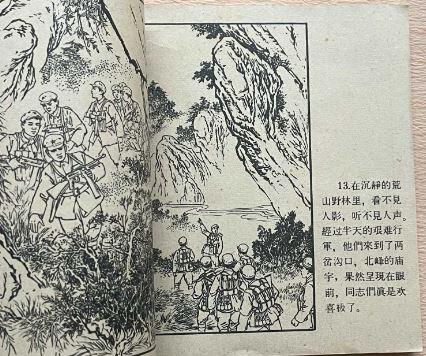 13.在沉静的荒
山野林里，看不見
人影，听不見人声。
經过半天的艰难行
軍，他們來到了两
岔沟口，北峰的庙
宇，果然呈現在眼
前，同志們眞是欢
喜极了。